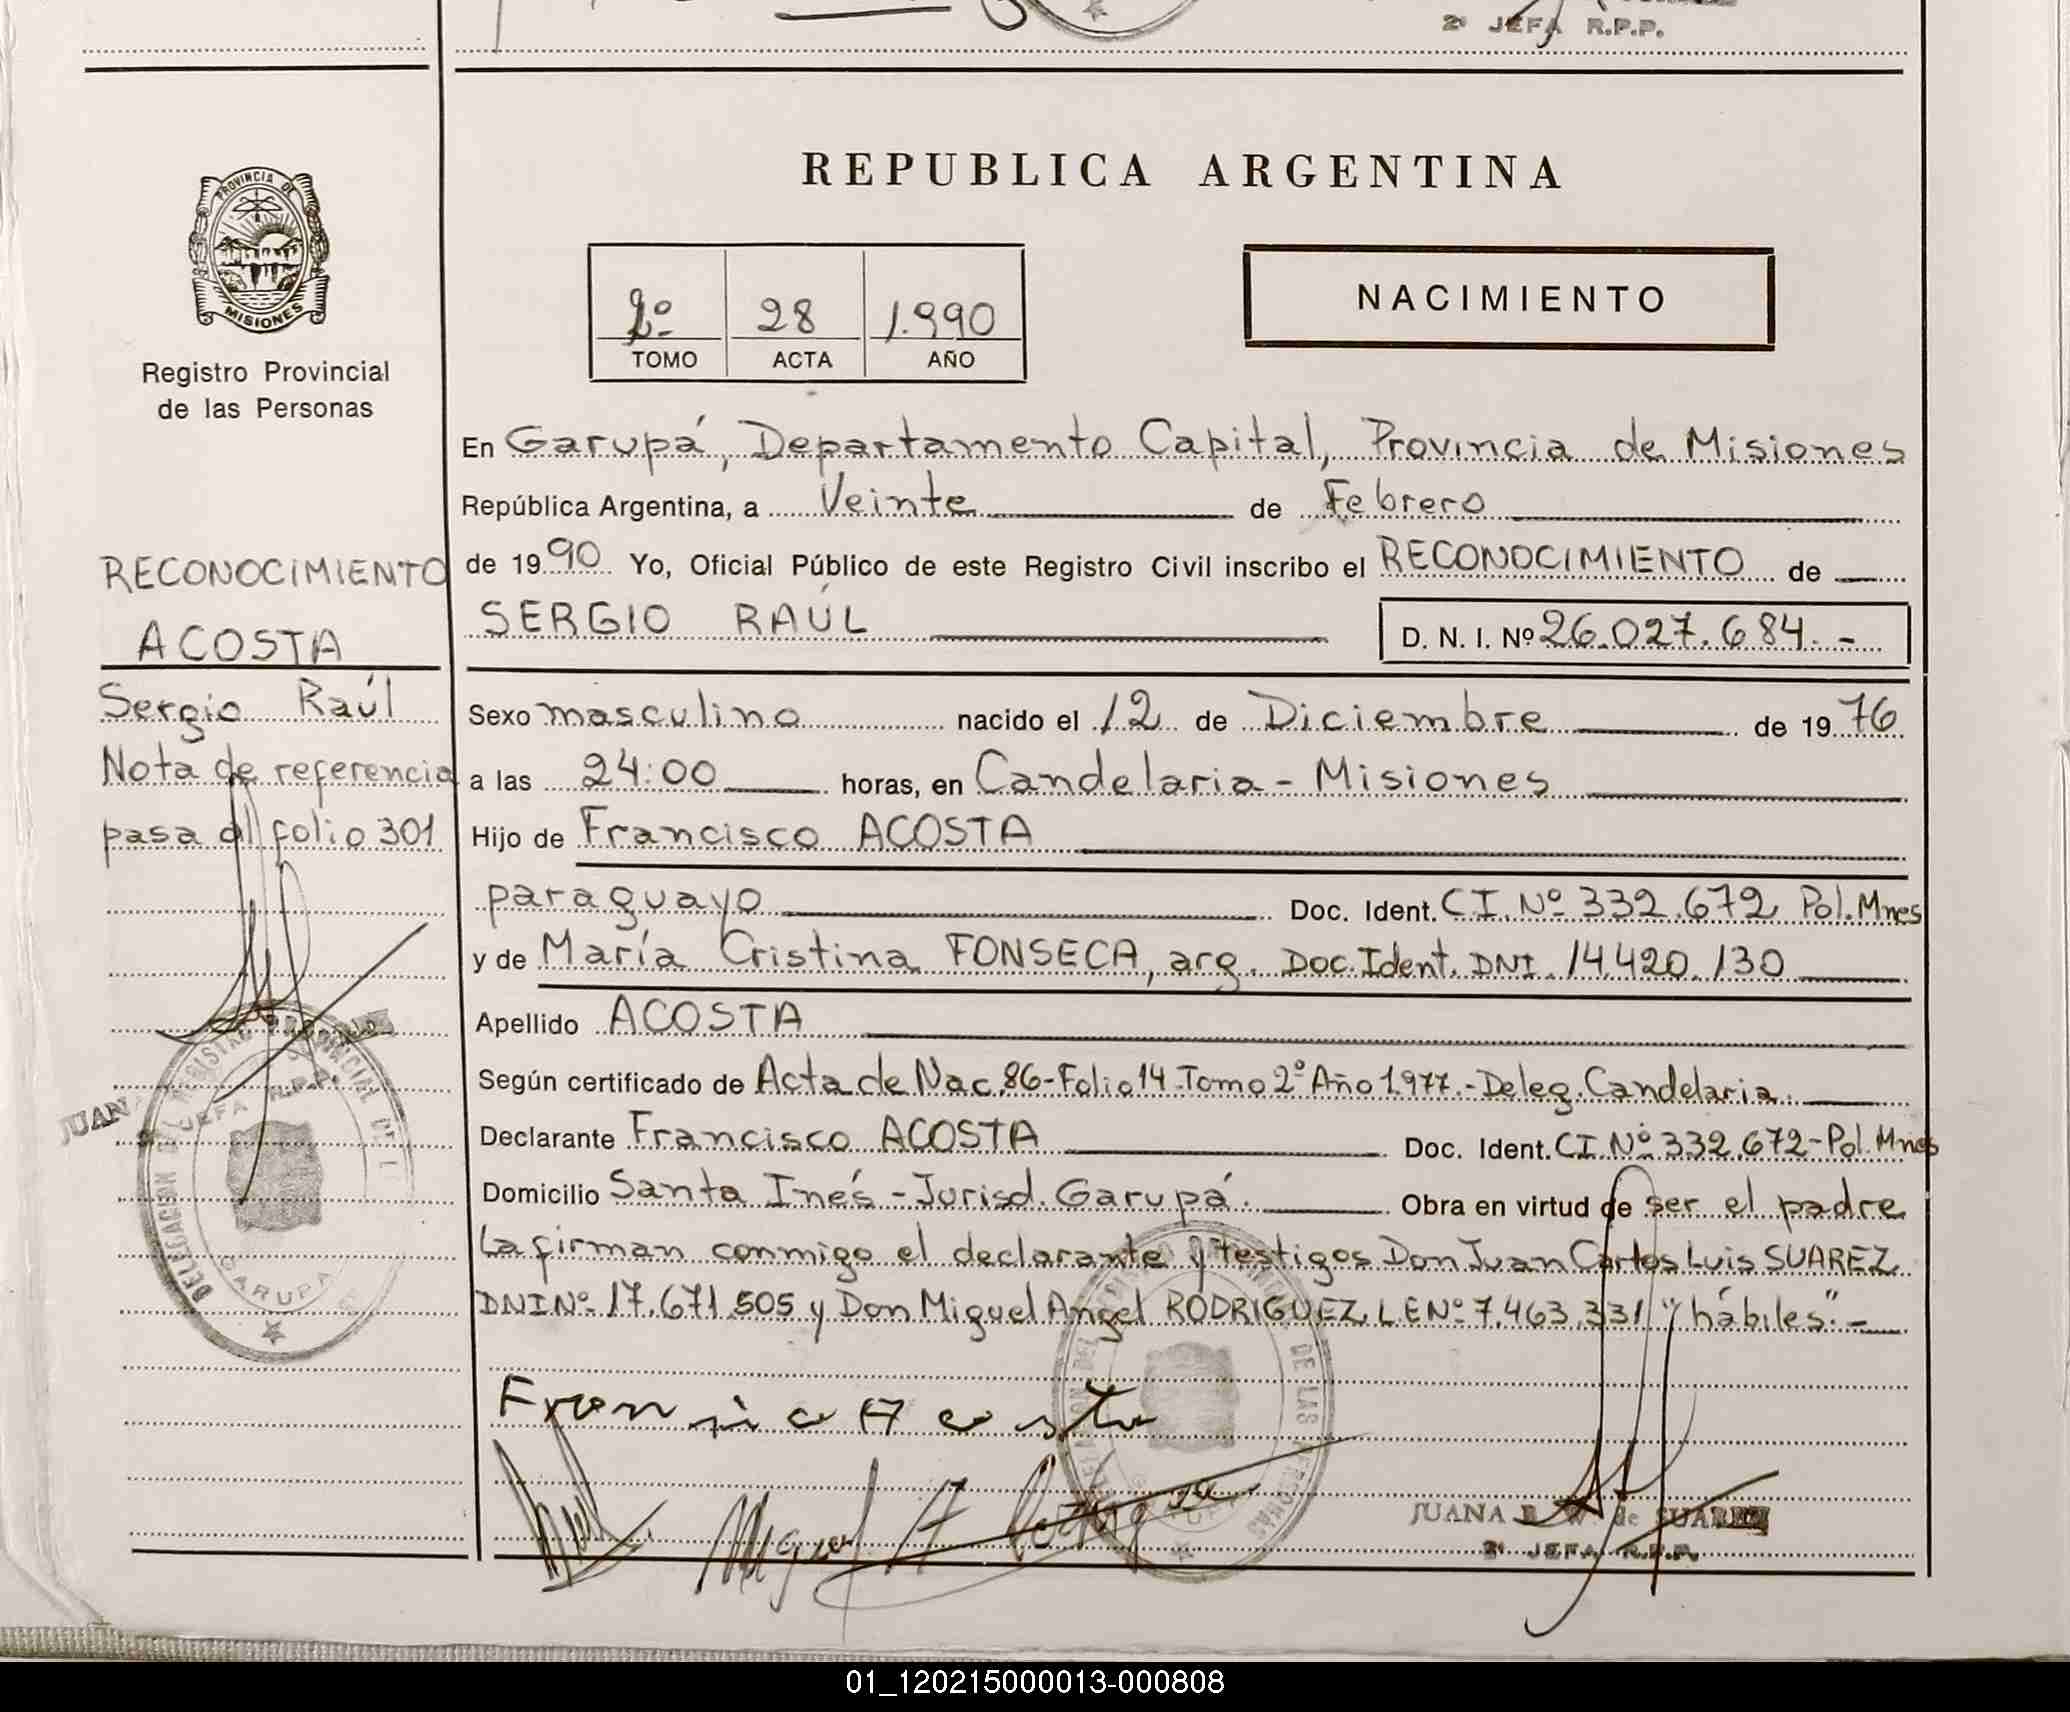 2º JEFA R.P.P.
REPUBLICA ARGENTINA
PROVINCIA DE
MISIONES
Registro Provincial
de las Personas
2º 28 1.990
TOMO ACTA AÑO
NACIMIENTO
RECONOCIMIENTO
ACOSTA
Sergio Raúl
Nota de referencia
pasa al folio 301
JUANA
JEFA R.P.P.
GARUPA
En Garupá, Departamento Capital, Provincia de Misiones
República Argentina, a Veinte de Febrero
de 1990 Yo, Oficial Público de este Registro Civil inscribo el RECONOCIMIENTO de
SERGIO RAÚL D. N. I. Nº 26.027.684.-
Sexo masculino nacido el 12 de Diciembre de 1976
a las 24:00 horas, en Candelaria - Misiones
Hijo de Francisco ACOSTA
paraguayo Doc. Ident. CI. Nº 332.672 Pol. Mnes
y de María Cristina FONSECA, arg. Doc. Ident. DNI. 14.420.130
Apellido ACOSTA
Según certificado de Acta de Nac. 86-Folio 14-Tomo 2º Año 1.977.-Deleg. Candelaria.
Declarante Francisco ACOSTA Doc. Ident. CI Nº 332.672-Pol. Mnes
Domicilio Santa Inés - Jurisd. Garupá. Obra en virtud de ser el padre
La firman conmigo el declarante y testigos Don Juan Carlos Luis SUAREZ
DNI Nº 17.671.505 y Don Miguel Angel RODRIGUEZ L E Nº 7.463.331 "hábiles".-
DE LAS PERSONAS
JUANA de SUAREZ
2º JEFA R.P.P.
01_120215000013-000808